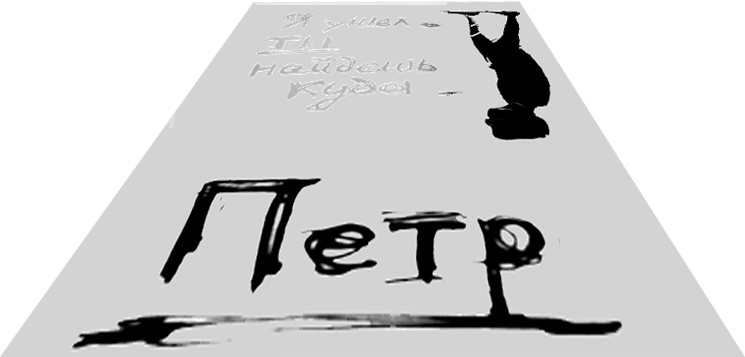 Я ушел.
Ты
найдешь
куда
Петр